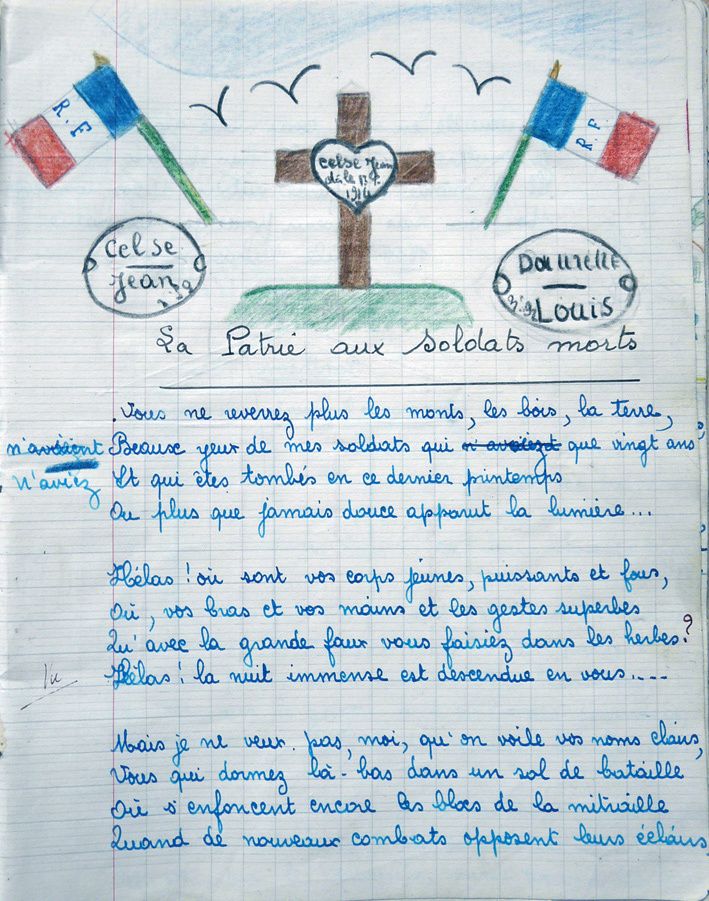 R.F
R.F.
Celse Jean
1914
Celse
Jean
Daurelle
Louis
La Patrie aux soldats morts
Vous ne reverrez plus les monts, les bois, la terre,
n'avaient
Beaux yeux de mes soldats qui que vingt ans
n'aviez
Et qui êtes tombés en ce dernier printemps
Ou plus que jamais douce apparut la lumière...
Hélas ! où sont vos corps jeunes, puissants et fous,
Où, vos bras et vos mains et les gestes superbes
Qu'avec la grande faux vous faisiez dans les herbes?
Vu
Hélas ! la nuit immense est descendue en vous....
Mais je ne veux. pas, moi, qu'on voile vos noms clairs,
Vous qui dormez là-bas dans un sol de bataille
Où s'enfoncent encore les blocs de la mitraille
Quand de nouveaux combats opposent leurs éclairs